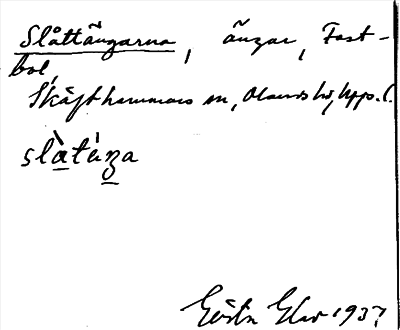 Slåttängarna, ängar, Fast-
bol,
Skäfthammars sn, Olands hd, Upps. l.
slàtáŋa
Gösta 1937